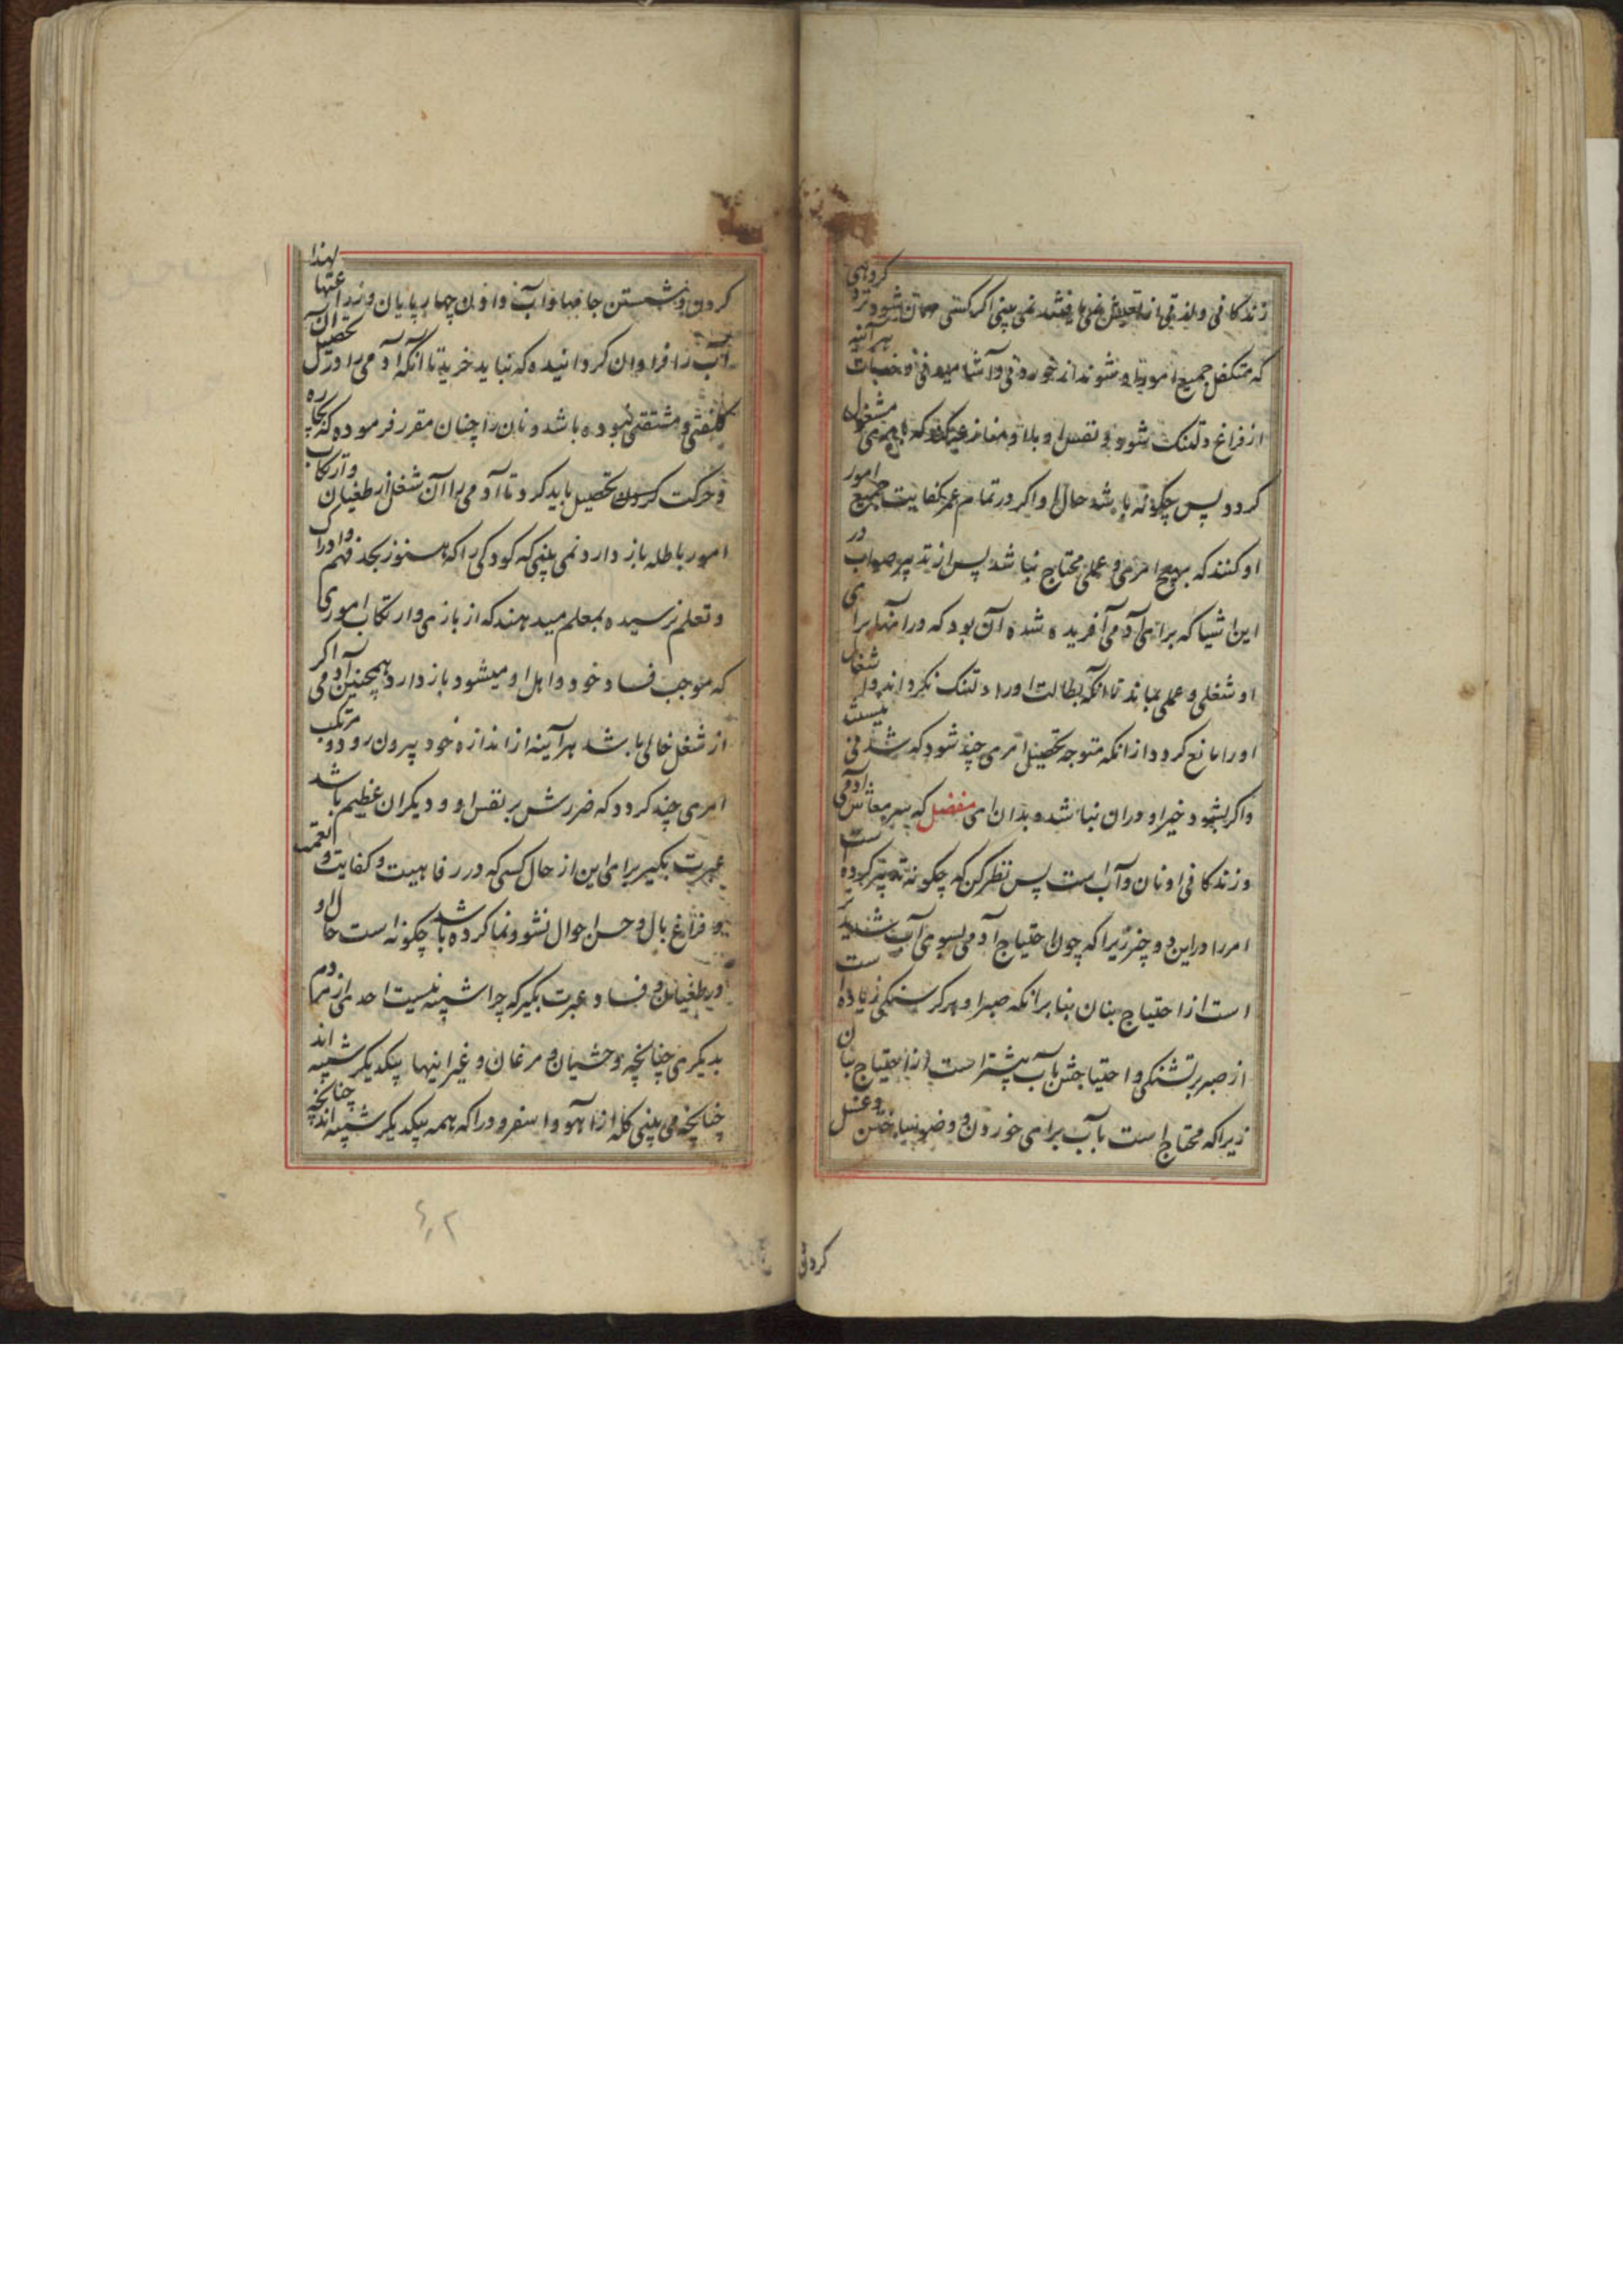 زندگانی و لذتی از تعیش نمی‌یافتند نمی بینی اگر کسی مهمان شود نزد گروهی
که متکفل جمیع امور او شوند از خوردنی و آشامیدنی و خدمات هر آینه
از فراغ دلتنک شود و نفس او با او منازعه میکند که بامری مشغول
کردد پس چکونه باشد حال او اکر در تمام عمر کفایت جمیع امور
او کنند که بهیچ امری و عملی محتاج نباشد پس از تدبیر صواب در
این اشیا که برای آدمی آفریده شده آن بود که در آنها برای
او شغلی و عملی بماند تا آنکه بطالت او را دلتنک نکرداند و اشغال
او را مانع کردد از آنکه متوجه تحصیل امری چند شود که شدنی نیست
و اکر بشود خیر او در آن نباشد و بدان ای مفضل که سر معاش آدمی
و زندکانی او نان و آب است پس نظر کن که چکونه تدبیر کرده است
امر را در این دو چیز زیرا که چون احتیاج آدمی بسوی آب شدیدتر
است از احتیاج بنان بنابر آنکه صبر او بر کرسنکی زیاده است
از صبر بر تشنکی و احتیاجش بآب بیشتر است از احتیاج بنان
زیرا که محتاج است بآب برای خوردن و وضو ساختن و غسل
کردن
کردن و شستن جامها و آب دادن چهارپایان و زراعتها لهذا
آب را فراوان کردانیده که نباید خرید تا آنکه آدمی را در تحصیل آن
کلفتی و مشقتی نبوده باشد و نان را چنان مقرر فرموده که بچاره
و حرکت کردن تحصیل باید کرد تا آدمی را آن شغل از طغیان و ارتکاب
امور باطله باز دارد نمی بینی که کودکی را که هنوز بحد فهم و ادراک
و تعلم نرسیده بمعلم میدهند که از بازی و ارتکاب اموری
که موجب فساد خود و اهل او میشود باز دارد همچنین آدمی اکر
از شغل خالی باشد هر آینه از اندازه خود بیرون رود و مرتکب
امری چند کردد که ضررش بر نفس او و دیکران عظیم باشد
عبرت بکیر برای این از حال کسی که در رفاهیت و کفایت و نعمت
و فراغ بال و حسن احوال نشو و نما کرده باشد چکونه است حال او
در طغیان و فساد عبرت بکیر که چرا شبیه نیست احدی از مردم
بدیکری چنانچه وحشیان و مرغان و غیر اینها بیکدیکر شبیه اند
چنانچه می بینی کله از آهو و اسفرود را که همه بیکدیکر شبیه اند چنانچه
۶۰۲